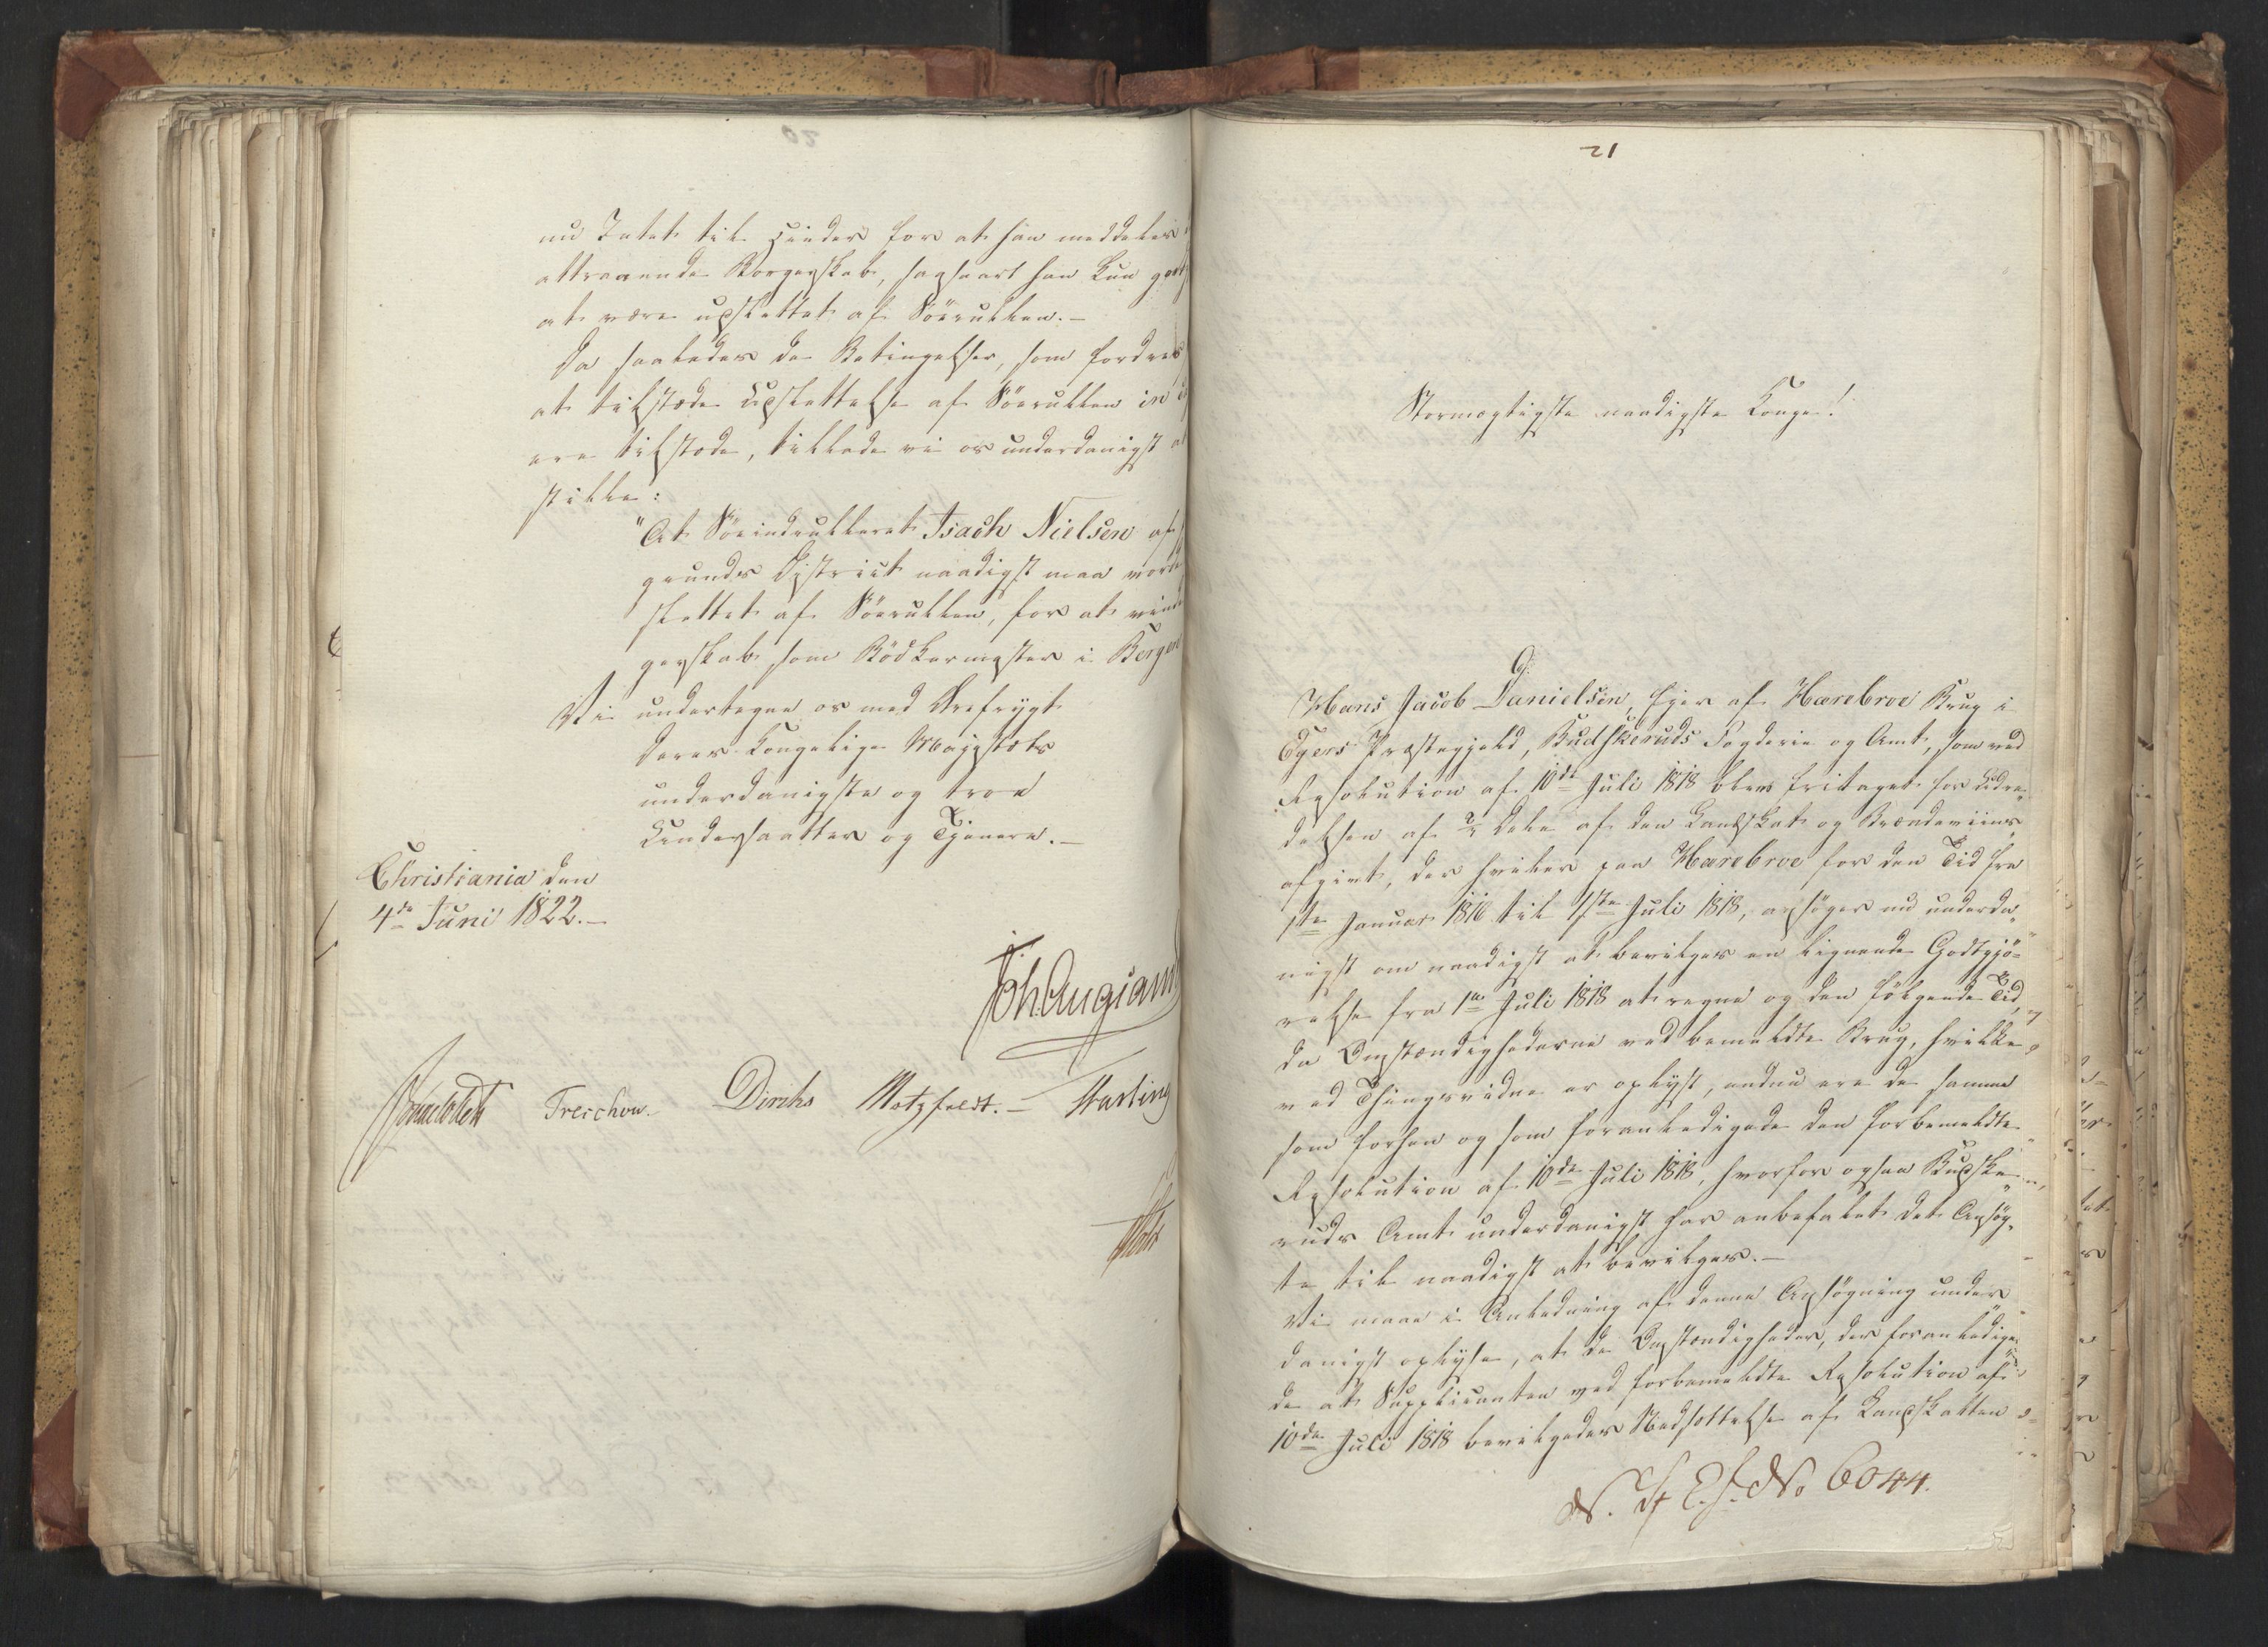 20
nu Intet til Hinder for at han meddeles
attraaende Borgerskab, saasnart han kun
at være udslettet af Söerullen.-
Da saaledes de Betingelser, som fordres
at tilstede Udslettelse af Söerullen in
ere tilstede, tillade vi os underdanigst
stille:
"At Söeindrulleret Isach Nielsen af
grunds District naadigst maa vorde
slettet af Söerullen, for at vinde
gerskab som Bödkermester i Bergen
Vi undertegne os med Ærefrygt
Deres Kongelige Majestæts
underdanigste og troe
Undersaatter og Tjenere.-
Christiania den
4de Juni 1822.-
Joh. Aug. Sand
Sommerhielm Treschow. Diriks Motzfeldt.- Fasting
Holst
21
Stormægtigste naadigste Konge!
Hans Jacob Danielsen, Ejer af Hærebroe Brug i
Egers Præstegjeld, Budskeruds Fogderie og Amt, som ved
Resolution af 10de Juli 1818 blev fritaget for Udre-
delsen af 2/3 Dele af den Landskat og Brændeviins-
afgivt, der hviler paa Hærebroe for den Tid fra
1ste Januar 1816 til 1ste Juli 1818, ansöger nu underda-
nigst om naadigst at bevilges en lignende Godtgjö-
relse fra 1ste Juli 1818 at regne og den fölgende Tid,
da Omstændighederne ved bemeldte Brug, hvilke
ved Thingsvidne er oplyst, endnu ere de samme
som forhen og som foranledigede den forbemeldte
Resolution af 10de Juli 1818, hvorfor ogsaa Budske-
ruds Amt underdanigst har anbefalet det Ansög-
te til naadigst at bevilges.-
Vi maae i Anledning af denne Ansögning under-
danigst oplyse, at de Omstændigheder, der foranledige-
de at Supplicanten ved forbemeldte Resolution af
10de Juli 1818 bevilgedes Nedsættelse af Landskatten
No 6044.